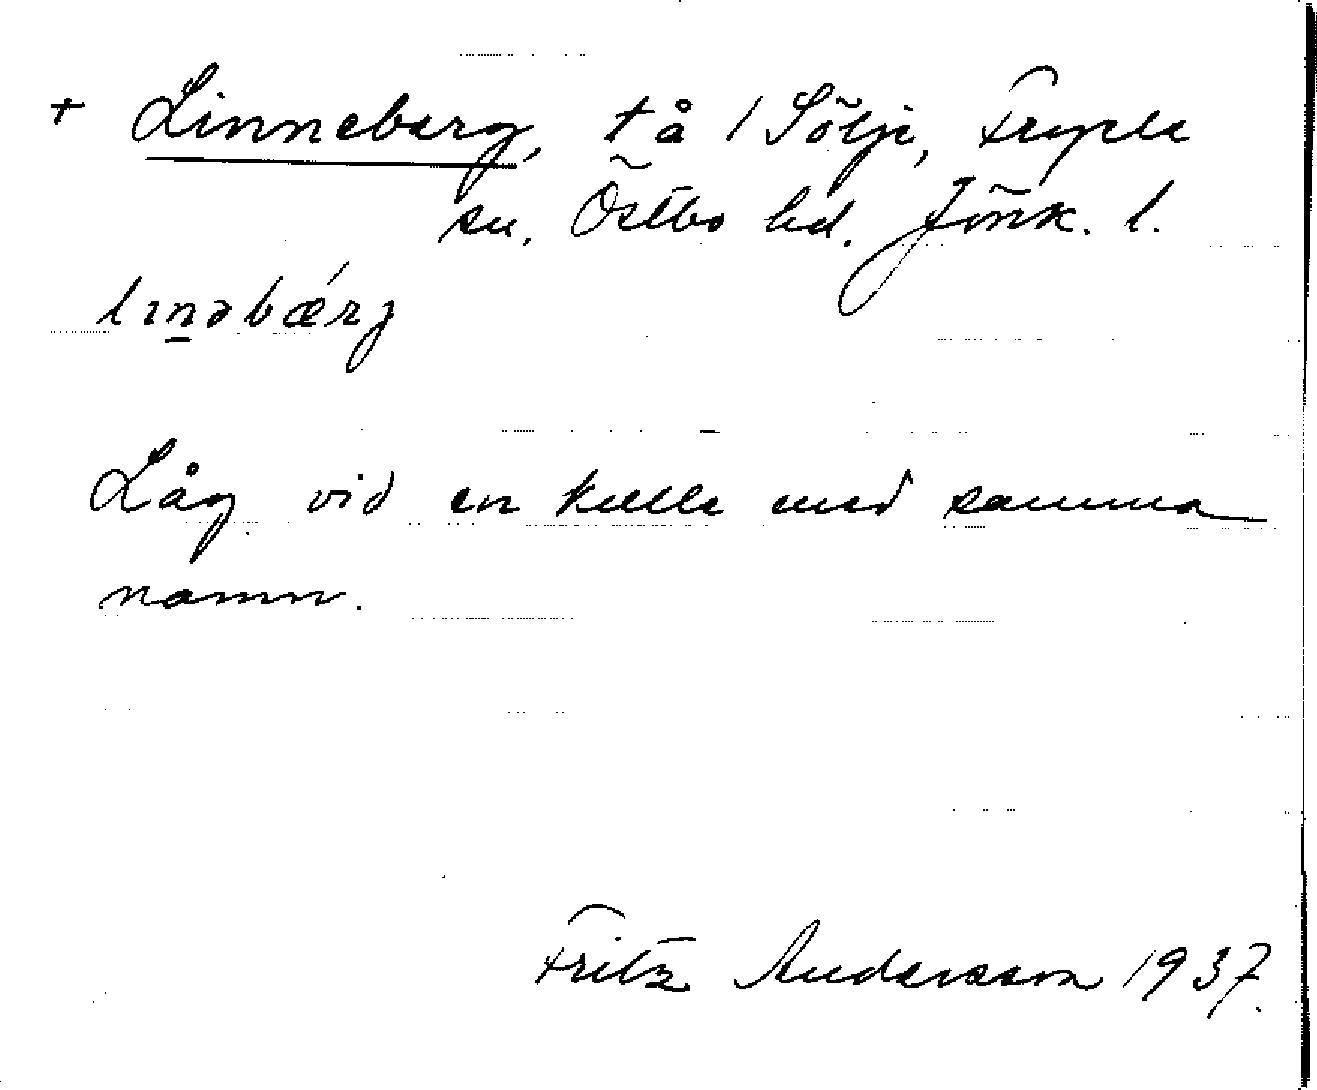 + Linneberg, t å 1 Sölje, Fryele
sn, Östbo hd. Jönk. l.
lınəbǽrj
Låg vid en kulle med samma
namn.
Fritz Andersson 1937.